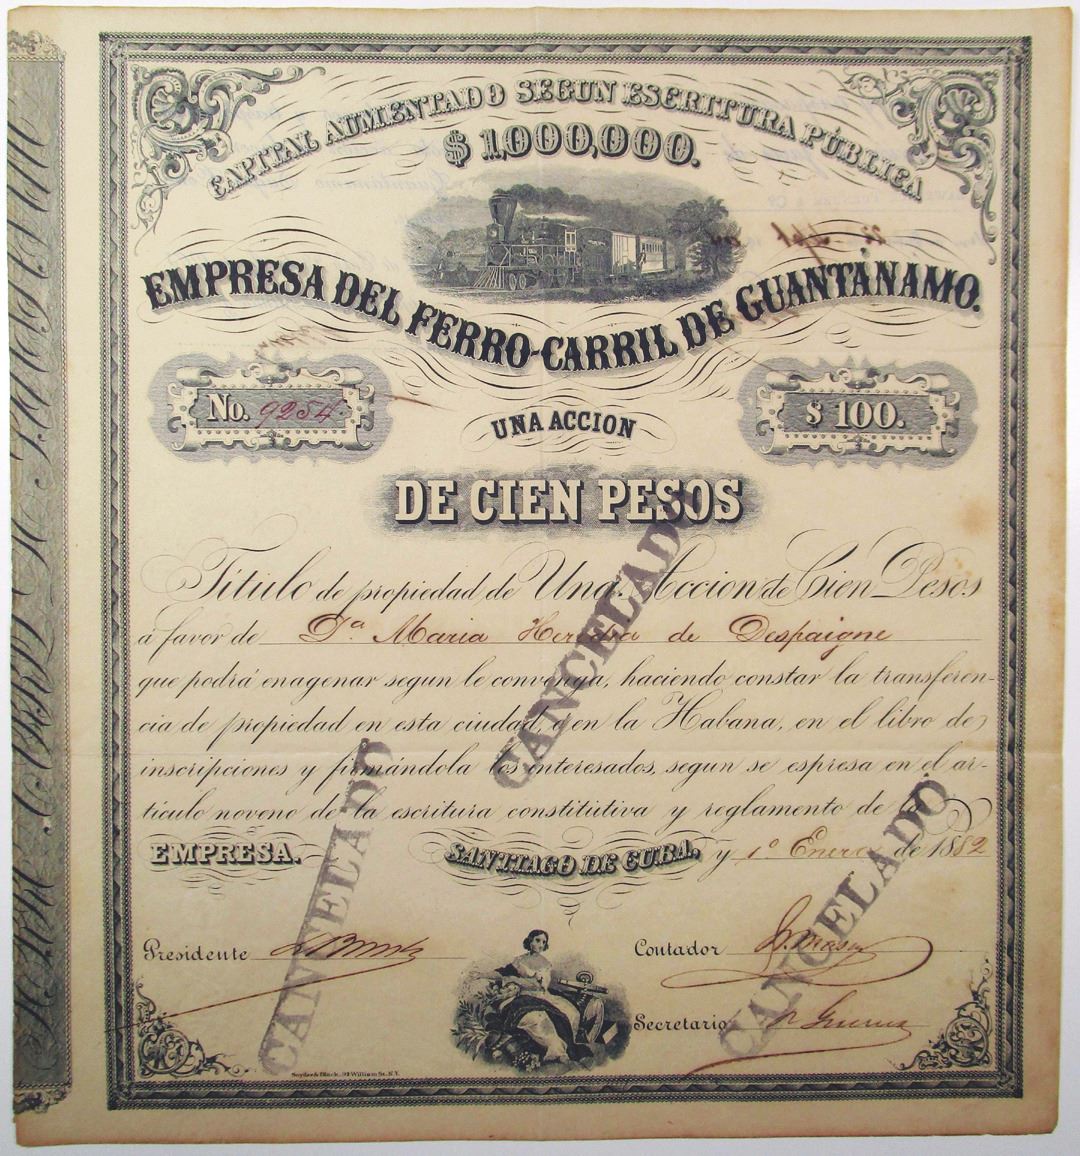 CAPITAL AUMENTADO SEGUN ESCRITURA PÚBLICA
$ 1,000,000.
EMPRESA DEL FERRO-CARRIL DE GUANTÁNAMO.
No. 9254
$ 100.
UNA ACCION
DE CIEN PESOS
Título de propiedad de Una Accion de Cien Pesos
á favor de Dª Maria Heredia de Despaigne
que podrá enagenar segun le convenga, haciendo constar la transferen-
cia de propiedad en esta ciudad, ó en la Habana, en el libro de
inscripciones y firmándola los interesados, segun se espresa en el ar-
tículo noveno de la escritura constitutiva y reglamento de la
EMPRESA. SANTIAGO DE CUBA, y 1º Enero de 1882
Presidente
Contador
Secretario
Snyder & Black, 92 William St. N.Y.
CANCELADO
CANCELADO
CANCELADO